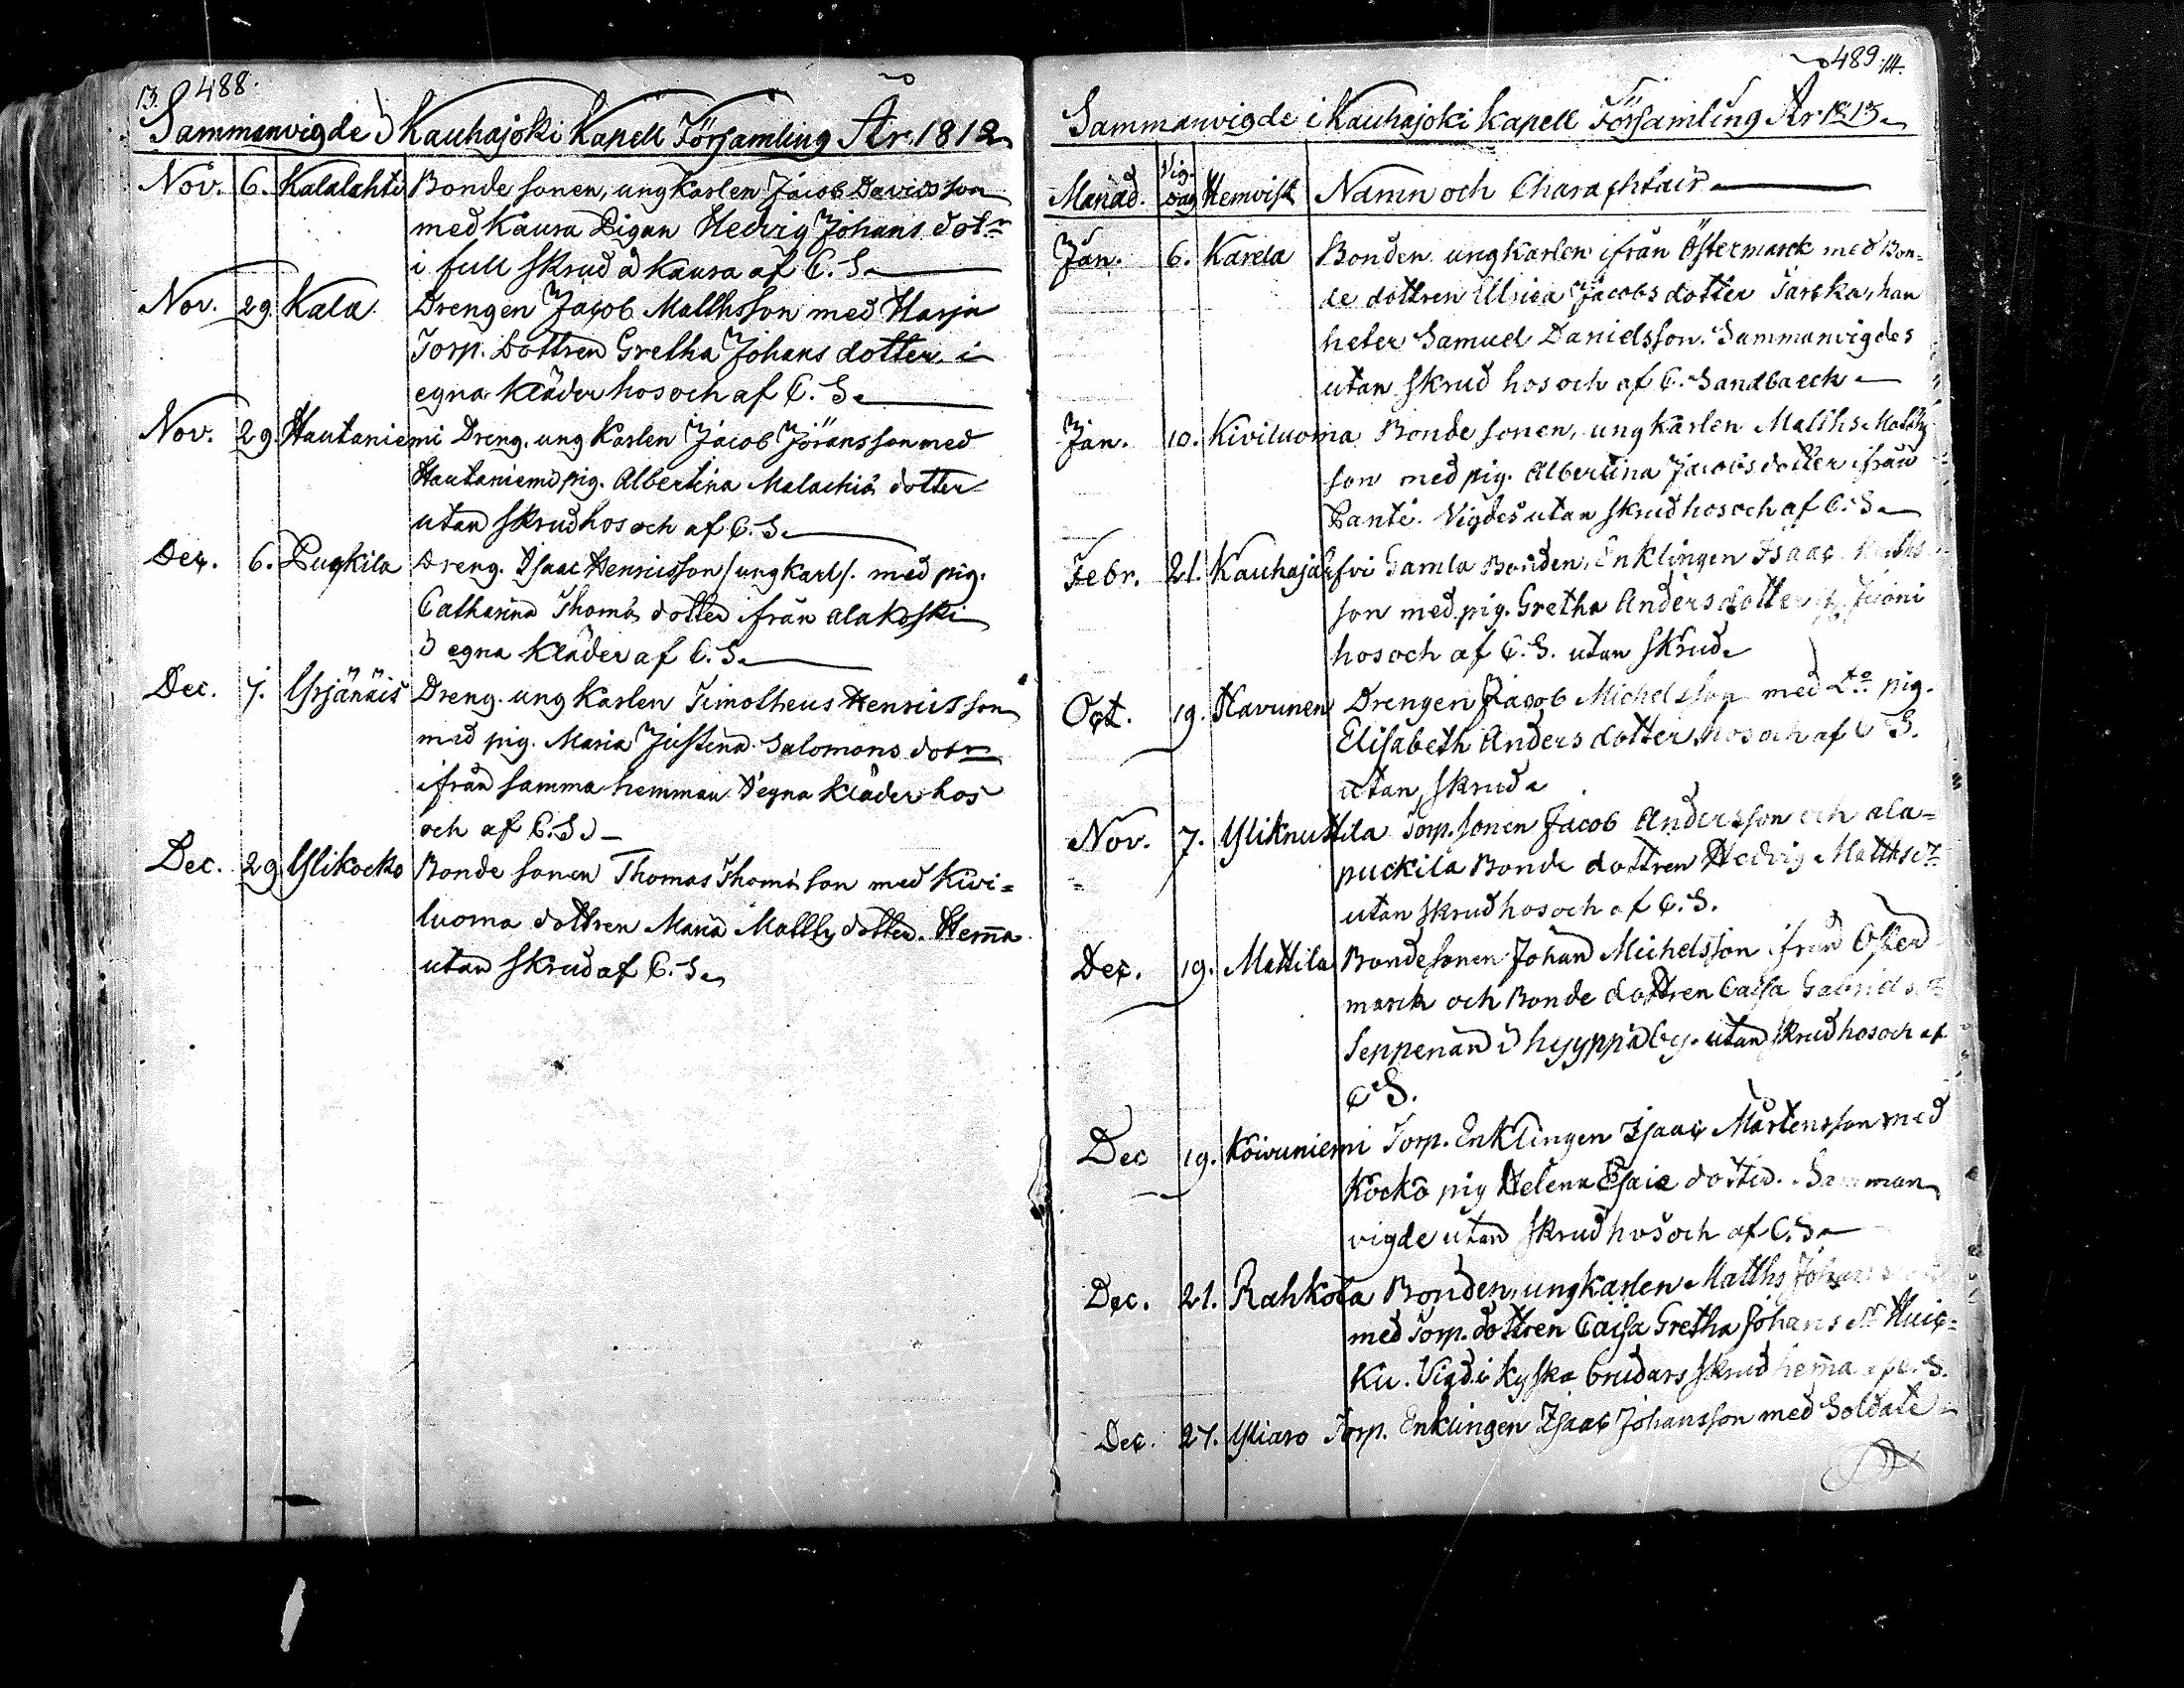 13. 488.
Sammanvigde i Kauhajoki Kapell Församling År 1812
Nov. 6. Kalalahti Bonde sonen, ungkarlen Jacob Davidsson
med Kaura Pigan Hedvig Johans dotr
i full skrud å Kaura af C. S.
Nov. 29 Kala Drengen Jacob Matthsson med Harja
Torp. Dottren Gretha Johans dotter i
egna kläder hos och af C. S.
Nov. 29. Hautaniemi Dreng. ung Karlen Jacob Jöransson med
Hautaniemi pig. Albertina Malachiæ dotter
utan skrud hos och af C. S.
Dec. 6. Puckila Dreng. Isaac Henricsson /ungkarl/. med pig.
Catharina Thomæ dotter ifrån alakoski
i egna kläder af C. S.
Dec. 7. Yrjänäis Dreng. ung Karlen Timotheus Henricsson
med pig. Maria Justina Salomons dotr
ifrån samma hemman i egna kläder hos
och af C. S.
Dec. 29 Ylikocko Bonde sonen Thomas Thomæson med Kivi=
luoma dottren Maria Matths dotter. Hem̄a
utan skrud af C. S.
489. 14.
Sammanvigde i Kauhajoki Kapell Församling År 1813
Månad. Vig. dag Hemvist Namn och Charachtair
Jan. 6. Karela Bonden ungkarlen ifrån Östermarck med Bon=
de dottren Ulrica Jacobs dotter Tarkka, han
heter Samuel Danielsson. Sammanvigdes
utan skrud hos och af C. Sandbaeck
Jan. 10. Kiviluoma Bonde sonen, ungkarlen Matths Matths
son med pig. Albertina Jacobs dotter ifrån
Panti. Vigdes utan skrud hos och af C. S.
Febr. 21. Kauhajärfvi Gamla Bonden, Enklingen Isaac
son med pig. Gretha Anders dotter
hos och af C. S. utan skrud
Oct. 19. Havunen Drengen Jacob Michelsson med Do pig.
Elisabeth Anders dotter, hos och af C S.
utan skrud
Nov. 7. Yliknuttila Torp. sonen Jacob Andersson och ala=
puckila Bonde dottren Hedvig Matths dr
utan skrud hos och af C. S.
Dec. 19. Mattila Bonde sonen Johan Michelsson ifrån Öster
marck och Bonde dottren Caisa Gabriels dr
Seppenan i hyyppä by. utan skrud hos och af
C S.
Dec 19. Koivuniemi Torp. Enklingen Isaac Mårtensson med
Kocko pig Helena Esaiæ dotter. Samman
vigde utan skrud hos och af C. S.
Dec. 21. Rahkola Bonden, ungkarlen Matths Johansson
med Torp. dottren Caisa Gretha Johans dr Huic=
ku. Vigd i kyska brudars skrud hem̄a af C. S.
Dec. 27. Yliaro Torp. Enklingen Isaac Johansson med Soldate